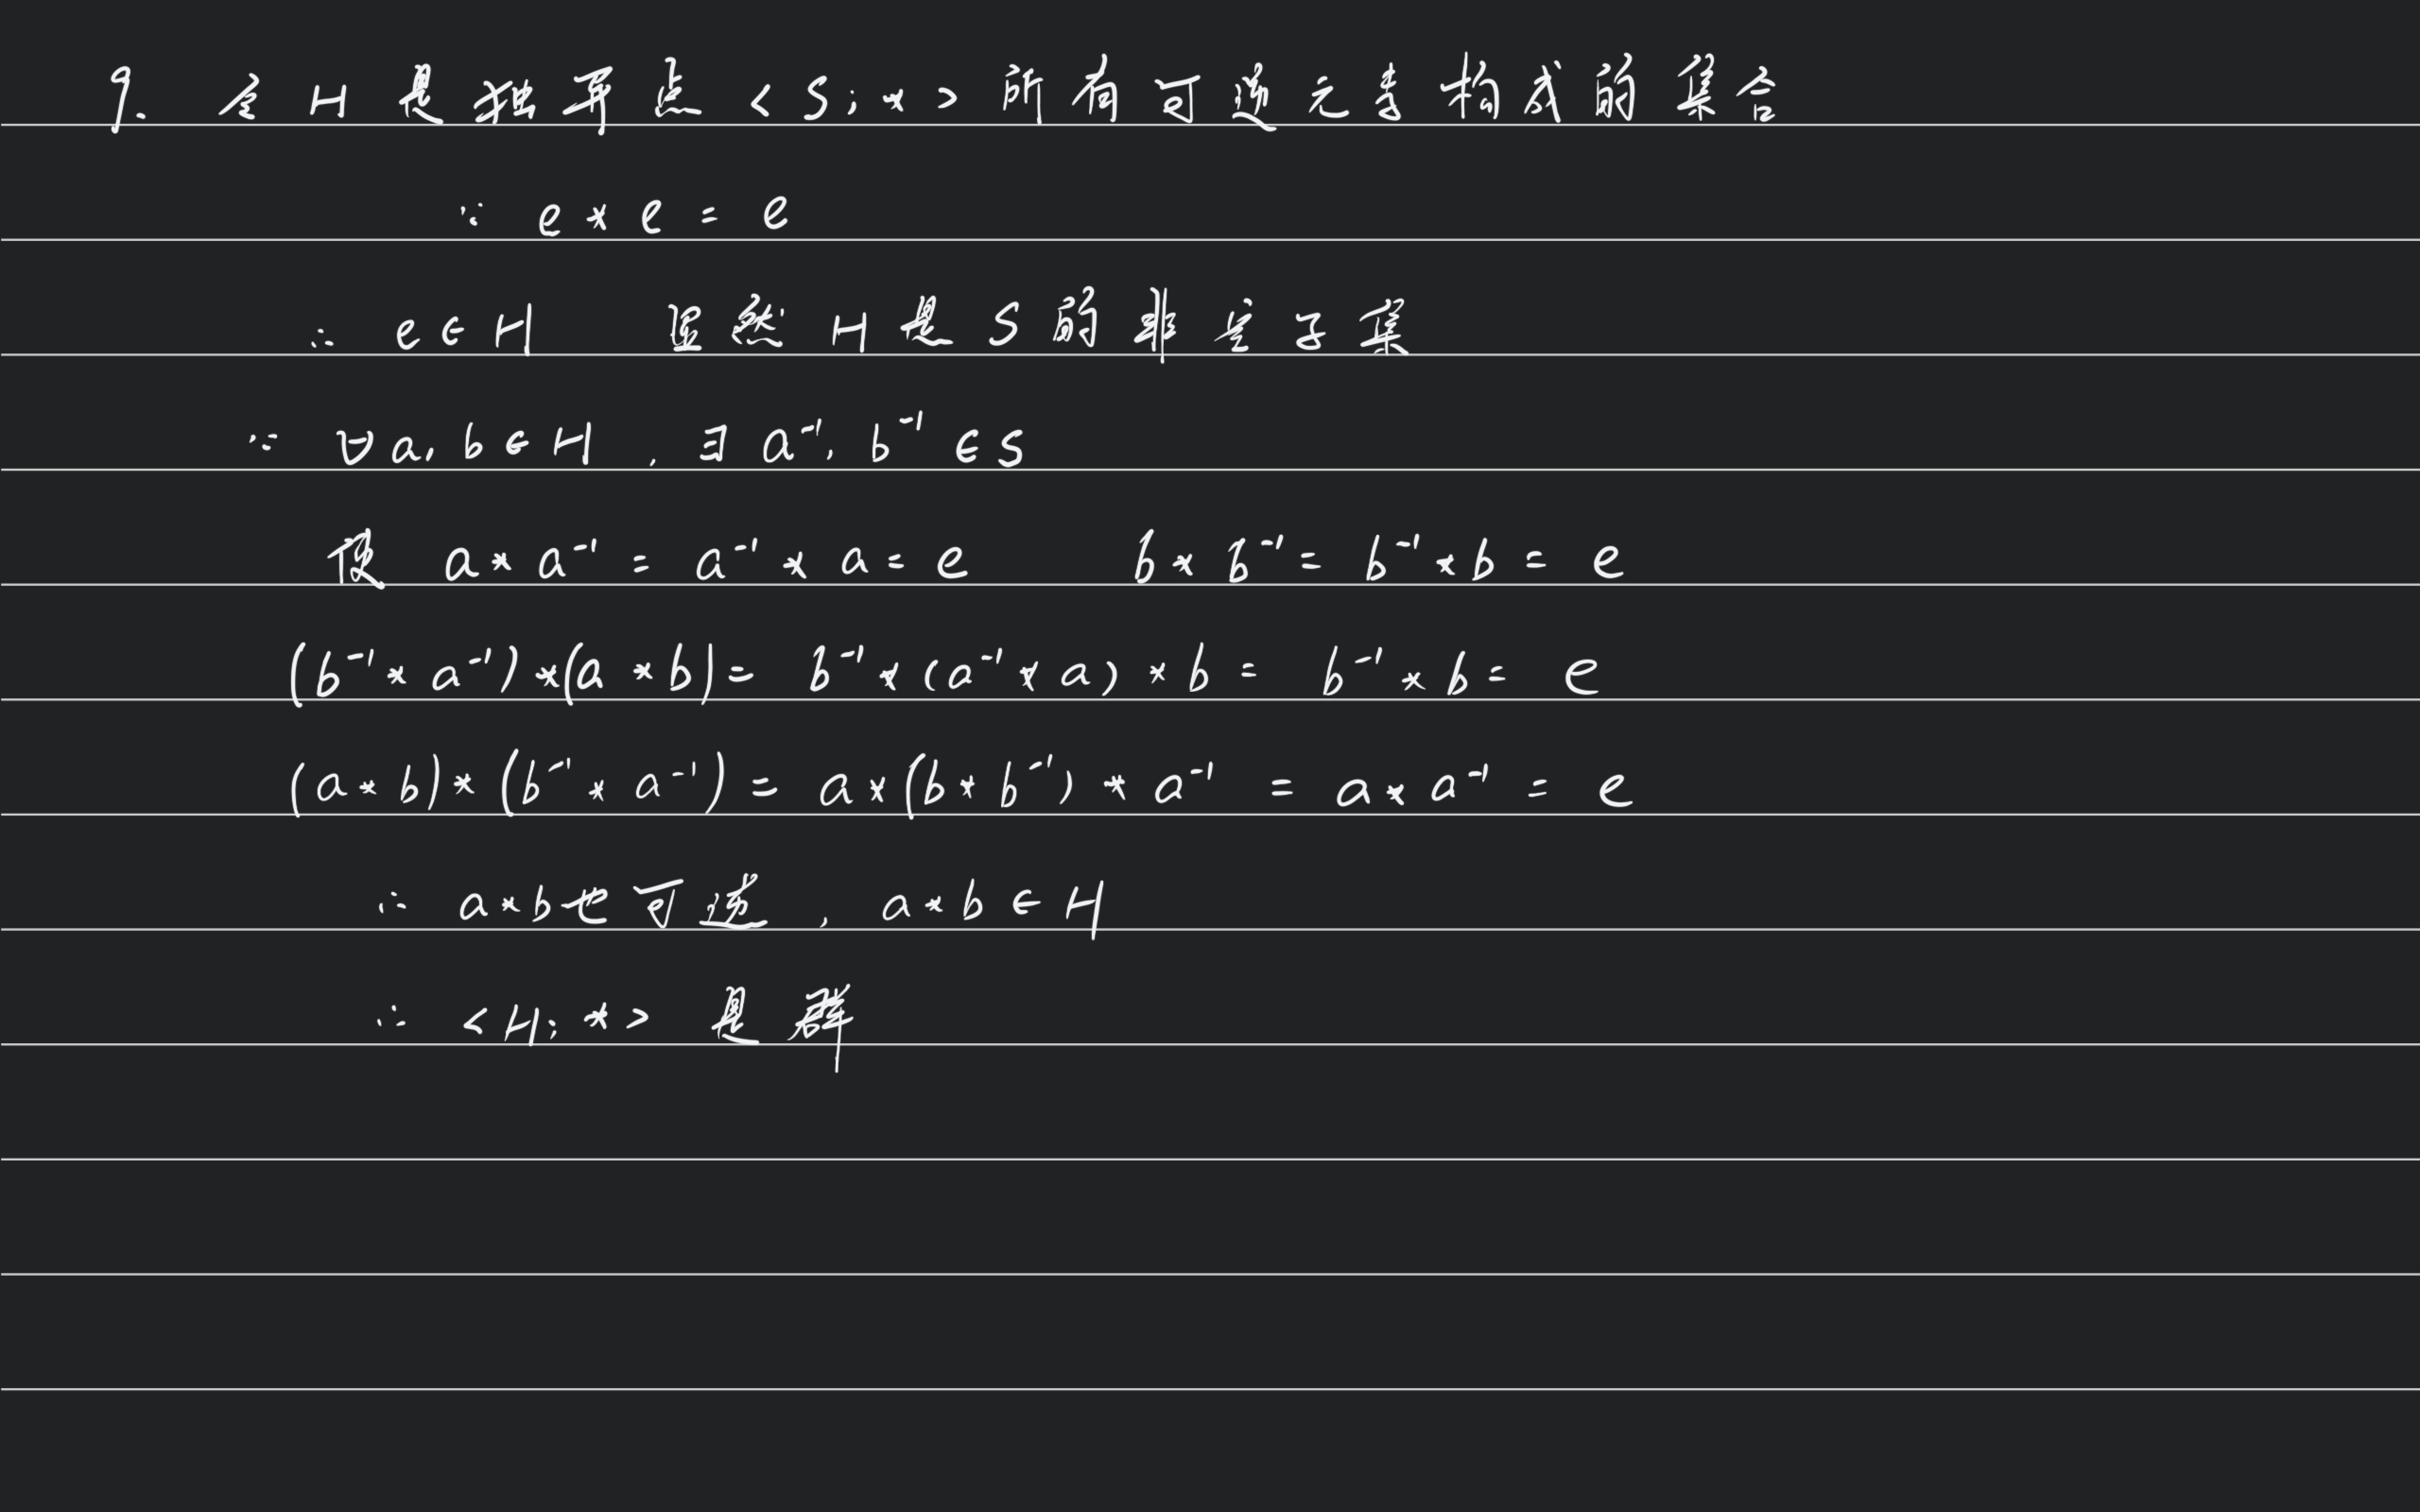 9. 令 H 是独异点 <S; *> 所有可逆元素构成的集合
∵ e * e = e
∴ e ∈ H 显然 H 是 S 的非空子集
∵ ∀a, b ∈ H, ∃ a⁻¹, b⁻¹ ∈ S
使 a * a⁻¹ = a⁻¹ * a = e b * b⁻¹ = b⁻¹ * b = e
(b⁻¹ * a⁻¹) * (a * b) = b⁻¹ * (a⁻¹ * a) * b = b⁻¹ * b = e
(a * b) * (b⁻¹ * a⁻¹) = a * (b * b⁻¹) * a⁻¹ = a * a⁻¹ = e
∴ a * b 也可逆, a * b ∈ H
∴ <H; *> 是群